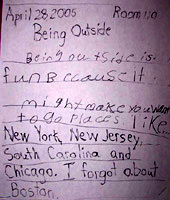 April 28, 2005 Room 110
Being Outside
Being outside is
fun Because it
might make you want
to go places. Like
New York, New Jersey,
South Carolina and
Chicago. I forgot about
Boston.